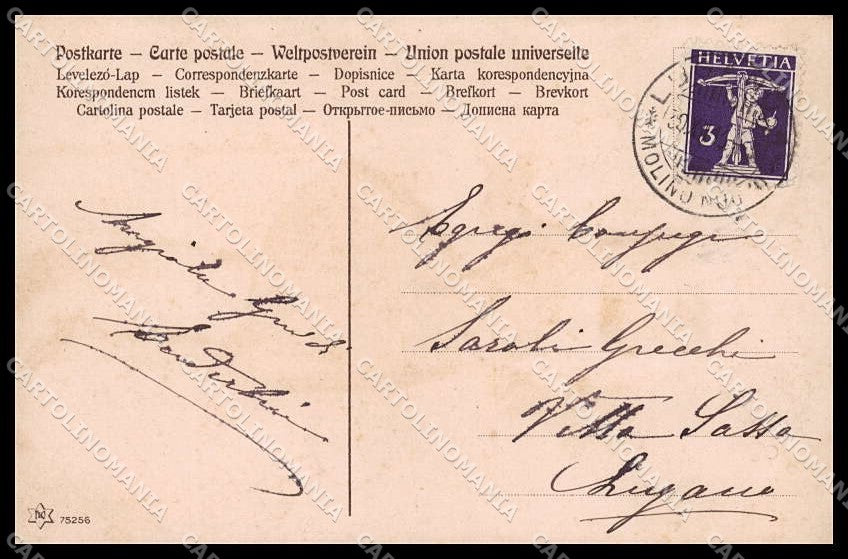 Postkarte – Carte postale – Weltpostverein – Union postale universelle
Levelező-Lap – Correspondenzkarte – Dopisnice – Karta korespondencyjna
Korespondencm listek – Briefkaart – Post card – Brefkort – Brevkort
Cartolina postale – Tarjeta postal – Открытое-письмо – Дописна карта
HELVETIA
3
MOLINO NUO
Egregi Coniugi
Saroli Grecchi
Villa Sassa
Lugano
75256
CARTOLINOMANIA